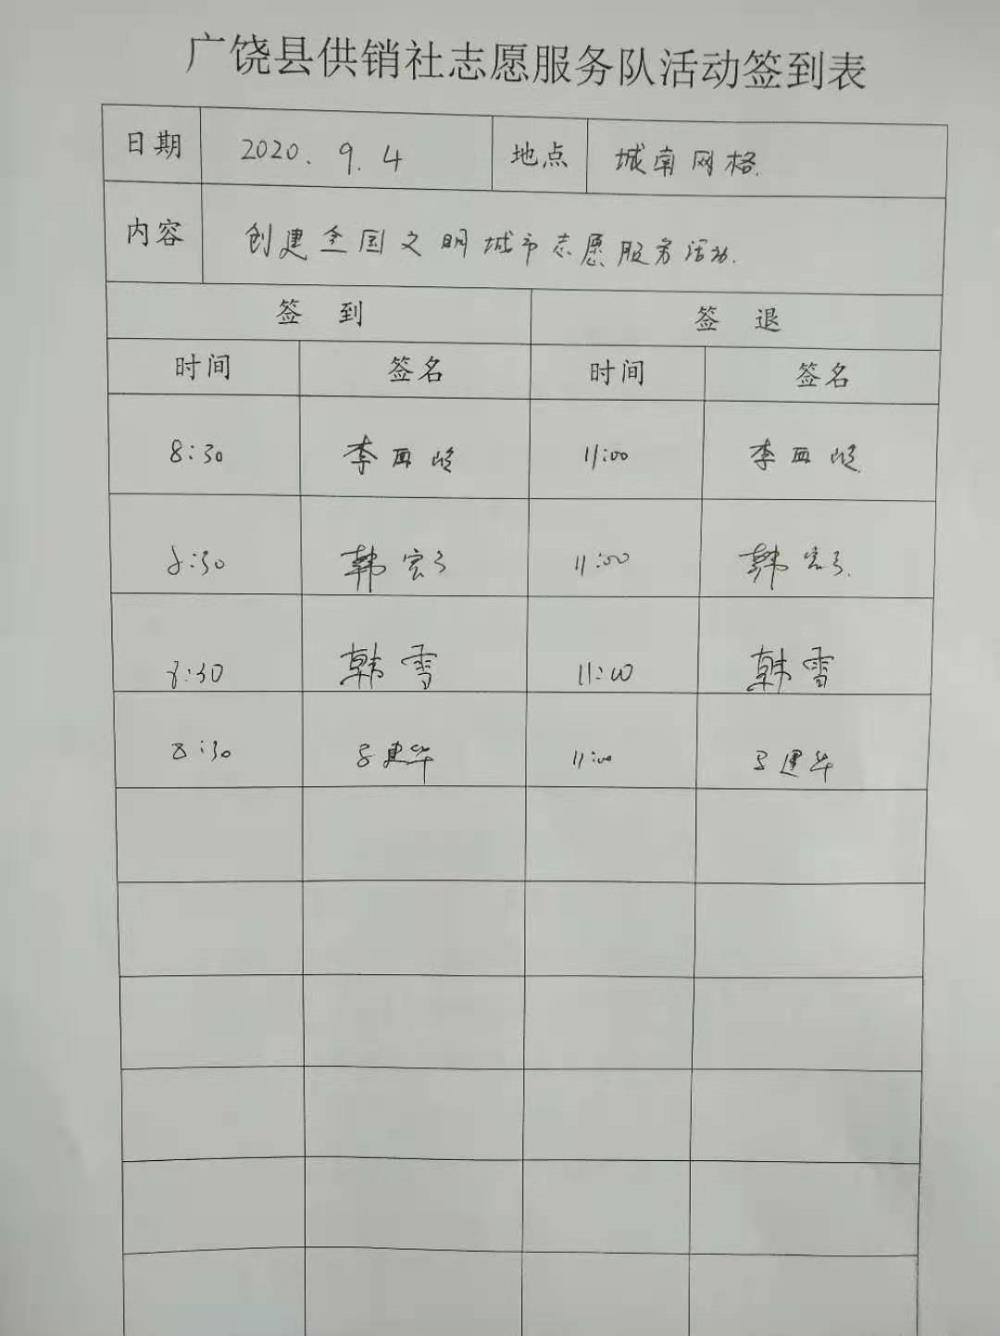 广饶县供销社志愿服务队活动签到表
日期 2020.9.4 地点 城南网格.
内容 创建全国文明城市志愿服务活动.
签 到 签 退
时间 签名 时间 签名
8:30 李 11:00 李
8:30 韩宏 11:00 韩宏
8:30 韩雪 11:00 韩雪
8:30 建华 11:00 建华